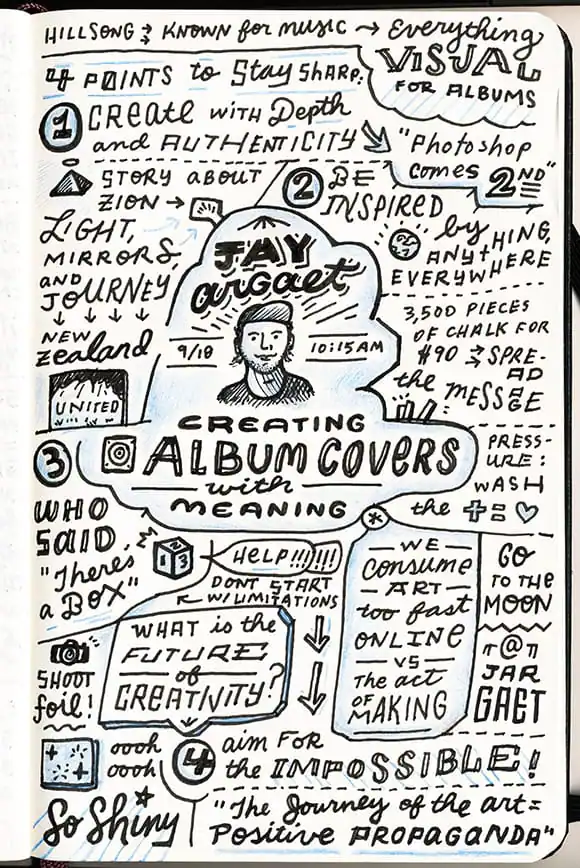 HILLSONG: KNOWN for music → Everything
VISUAL
FOR ALBUMS
4 POINTS to Stay SHARP:
1 CREATE WITH Depth
and AUTHENTICITY
"Photoshop
comes 2ND"
STORY ABOUT
ZION →
LIGHT,
MIRRORS,
AND
JOURNEY
↓ ↓ ↓ ↓
NEW
Zealand
UNITED
2 BE
INSPIRED
by
ANYTHING,
EVERYWHERE
3,500 PIECES
OF CHALK FOR
$90 → SPRE-
AD
the MESSAGE
JAY
argaet
9/18
10:15AM
CREATING
ALBUM COVERS
with
MEANING
PRESS-
URE:
WASH
the + = ♡
3
WHO
SAID,
"Theres
a BOX"
1 2 3
HELP!!!!!!!!
DONT START
W/LIMITATIONS
WHAT is the
FUTURE
of
CREATIVITY?
*
WE
CONSUME
ART
too fast
ONLINE
VS
The act
OF
MAKING
GO
TO THE
MOON
@
JAR
GAET
SHOOT
foil!
oooh
oooh
So Shiny
4 aim FOR
the IMPOSSIBLE!
"The Journey of the art =
Positive PROPAGANDA"